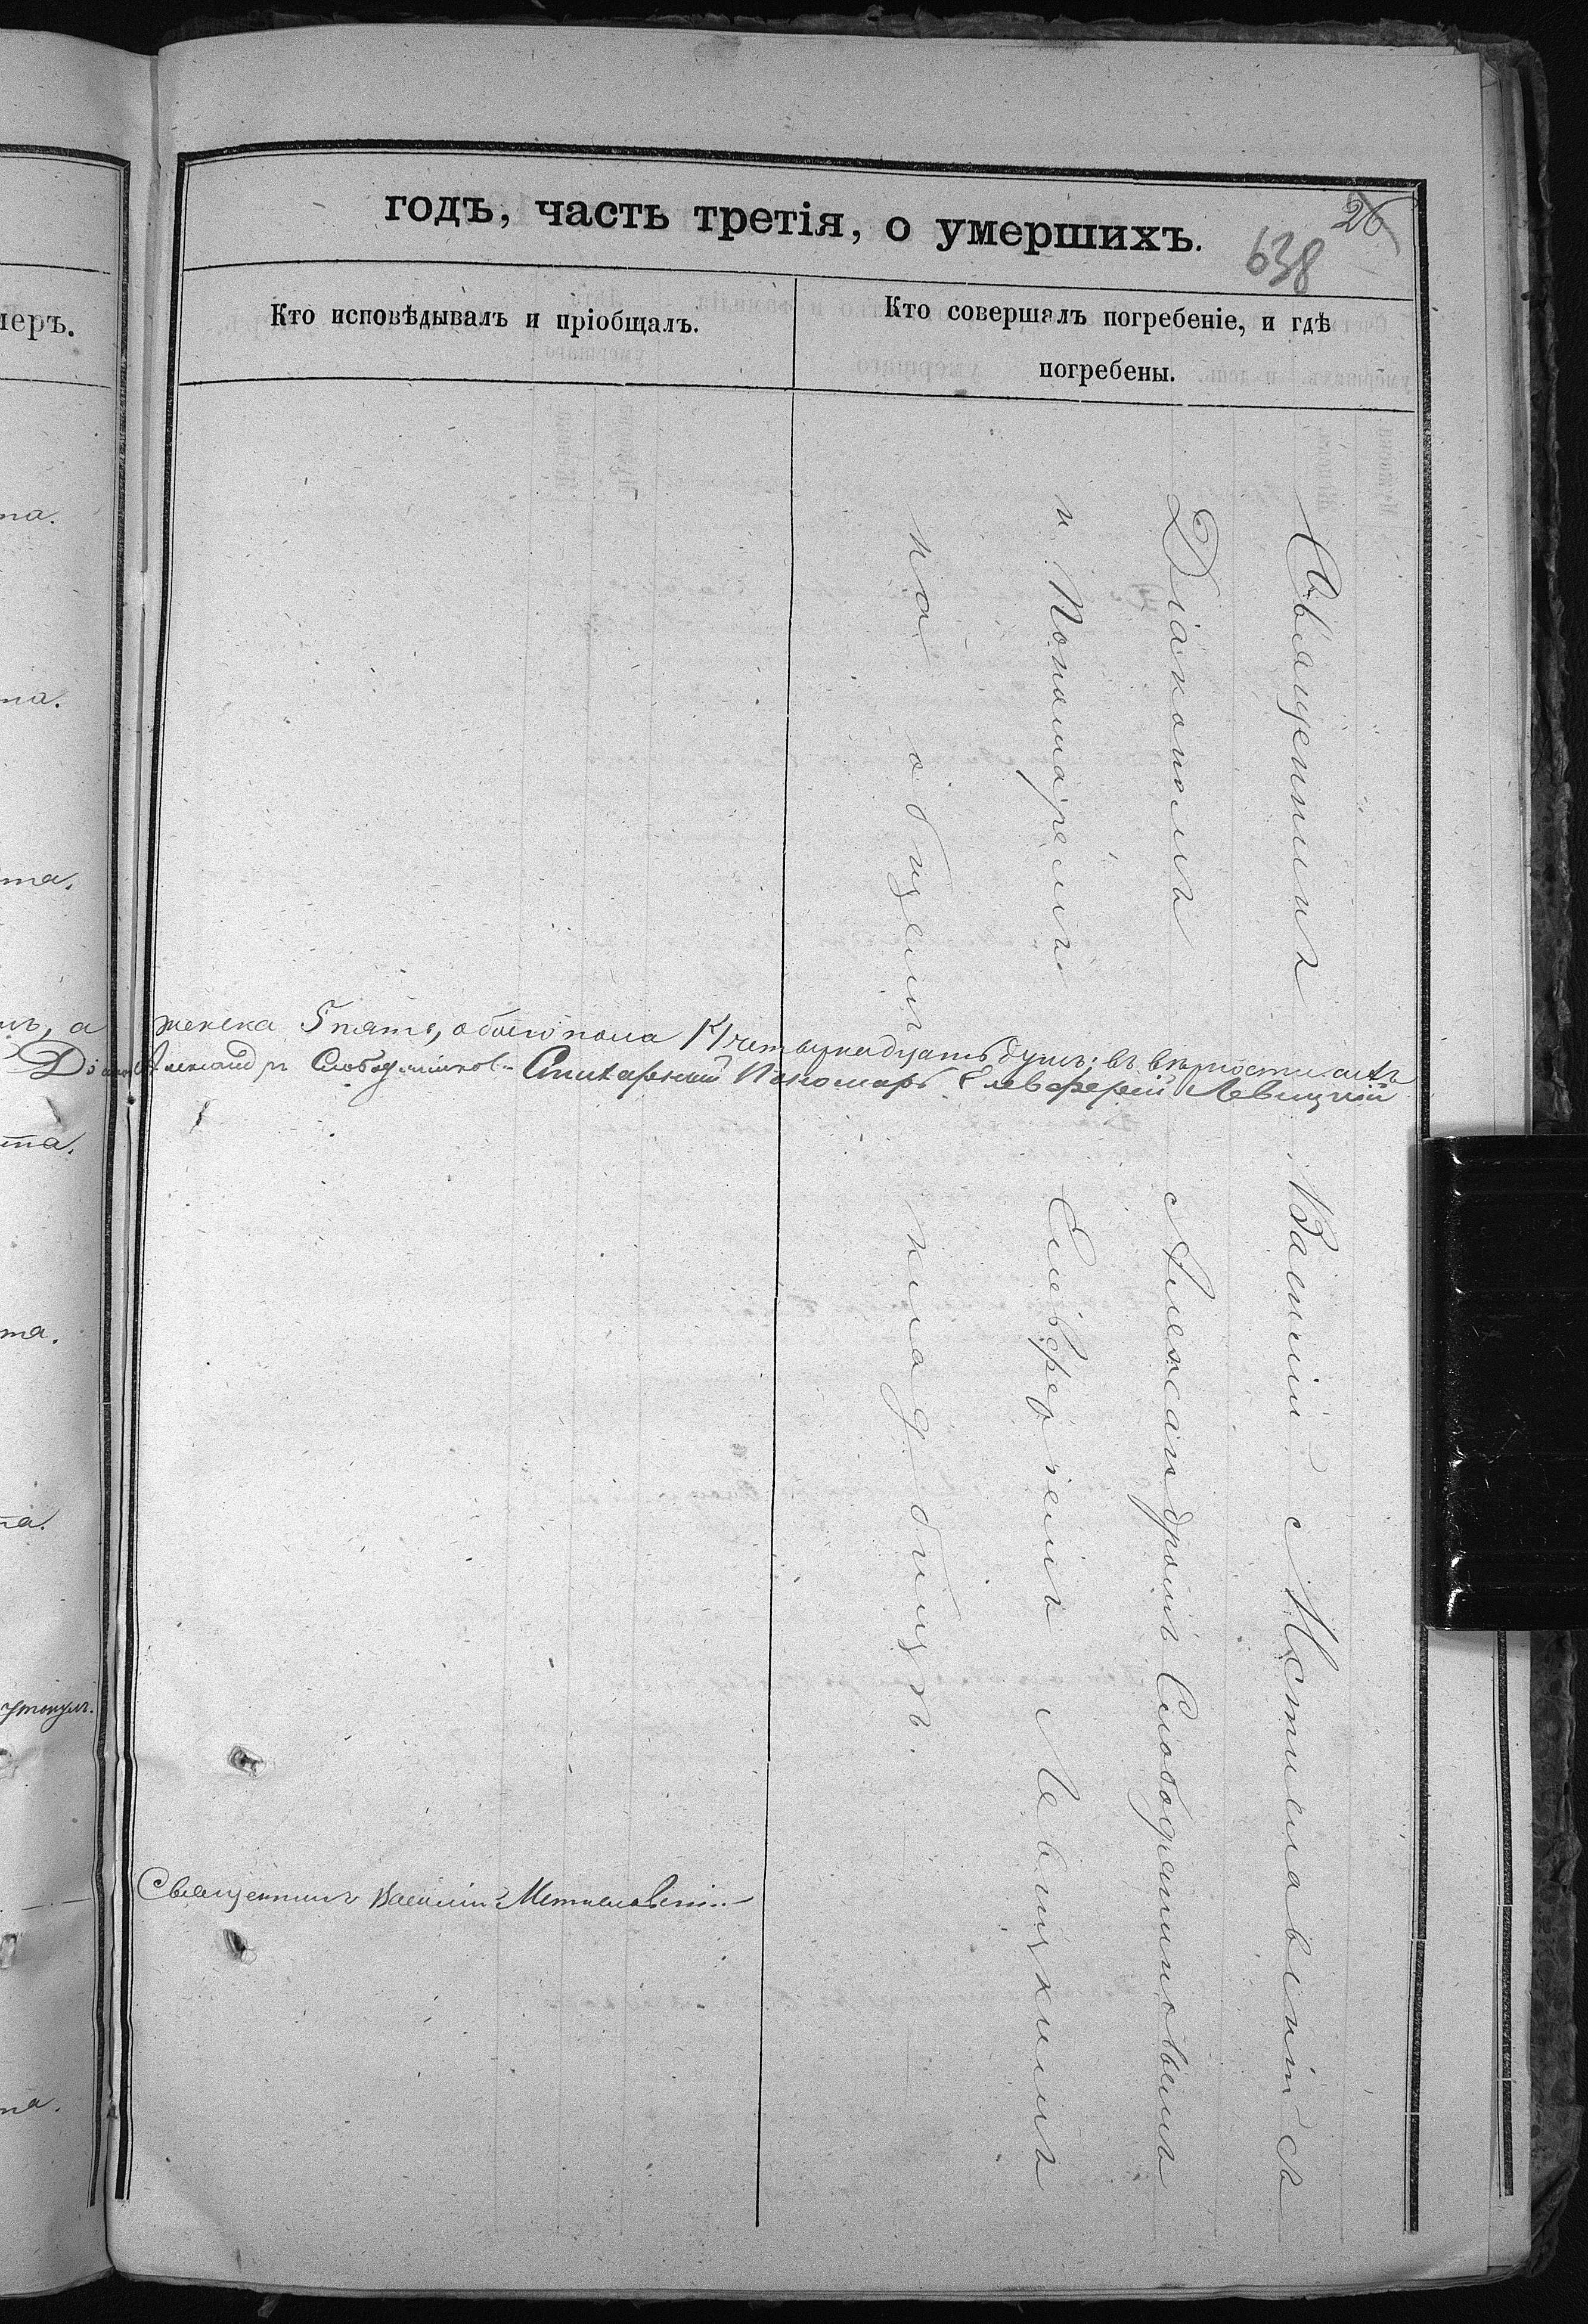 годъ, часть третія, о умершихъ.
26
638
меръ.
Кто исповѣдывалъ и пріобщалъ.
Кто совершалъ погребеніе, и гдѣ
погребены.
Священникъ Василій Мстиславскій съ
Діакономъ Александромъ Слободчиковымъ
и Пономаремъ Елевферіемъ Левицкимъ
на общемъ кладбищѣ.
та.
та.
та.
а женска 5 пять, обоего пола 14 четырнадцать душъ; въ вѣрности актъ
Александръ Слободчиковъ Пономарь Елевферій Левицкій
та.
та.
та.
утонулъ.
Священникъ Василій Мстиславскій
та.